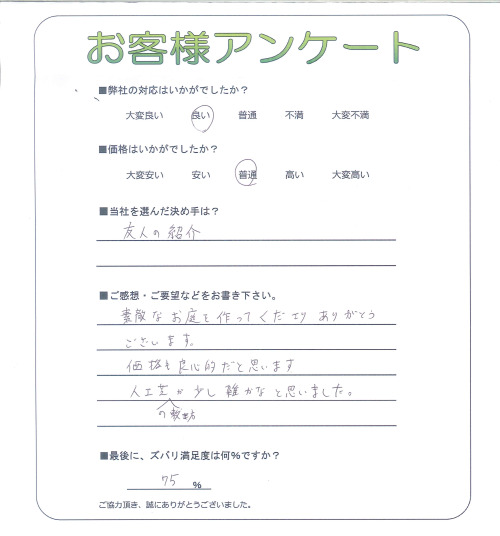 お客様アンケート
■弊社の対応はいかがでしたか？
大変良い 良い 普通 不満 大変不満
■価格はいかがでしたか？
大変安い 安い 普通 高い 大変高い
■当社を選んだ決め手は？
友人の紹介
■ご感想・ご要望などをお書き下さい。
素敵なお庭を作ってくださり ありがとう
ございます。
価格も良心的だと思います
人工芝が少し雑かなと思いました。
の
■最後に、ズバリ満足度は何%ですか？
75 %
ご協力頂き、誠にありがとうございました。